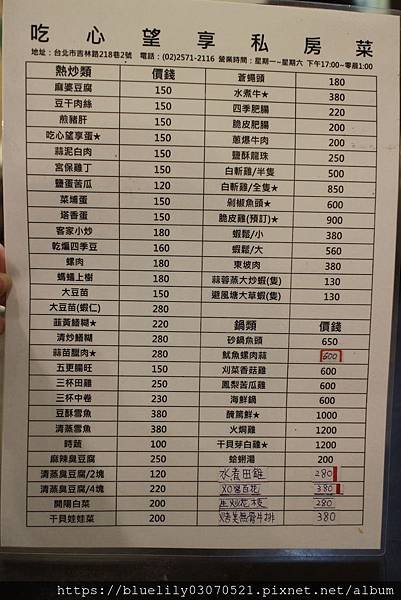 吃心望享私房菜
地址：台北市吉林路218巷2號 電話：(02)2571-2116 營業時間：星期一~星期六 下午17:00~零晨1:00
熱炒類 價錢
麻婆豆腐 150
豆干肉絲 150
煎豬肝 150
吃心望享蛋★ 150
蒜泥白肉 150
宮保雞丁 150
鹽蛋苦瓜 120
菜埔蛋 150
塔香蛋 150
客家小炒 180
乾煸四季豆 160
螺肉 180
螞蟻上樹 180
大豆苗 150
大豆苗(蝦仁) 280
韮黃鱔糊★ 220
清炒鱔糊 280
蒜苗臘肉★ 280
五更腸旺 150
三杯田雞 250
三杯中卷 230
豆酥雪魚 380
清蒸雪魚 380
時蔬 100
麻辣臭豆腐 250
清蒸臭豆腐/2塊 120
清蒸臭豆腐/4塊 220
開陽白菜 200
干貝娃娃菜 200
蒼蠅頭 180
水煮牛★ 380
四季肥腸 220
脆皮肥腸 200
蔥爆牛肉 200
鹽酥龍珠 250
白斬雞/半隻 500
白斬雞/全隻★ 850
剁椒魚頭★ 600
脆皮雞(預訂)★ 900
蝦鬆/小 380
蝦鬆/大 560
東坡肉 380
蒜蓉蒸大炒蝦(隻) 130
避風塘大草蝦(隻) 130
鍋類 價錢
砂鍋魚頭 650
魷魚螺肉蒜 600
刈菜香菇雞 600
鳳梨苦瓜雞 600
海鮮鍋 600
醃篤鮮★ 1000
火焗雞 1200
干貝芽白雞★ 1200
蛤蜊湯 200
水煮田雞 280
XO醬百花 380
生炒花枝 280
烤美無骨牛排 380
https://bluelily03070521.pixnet.net/album